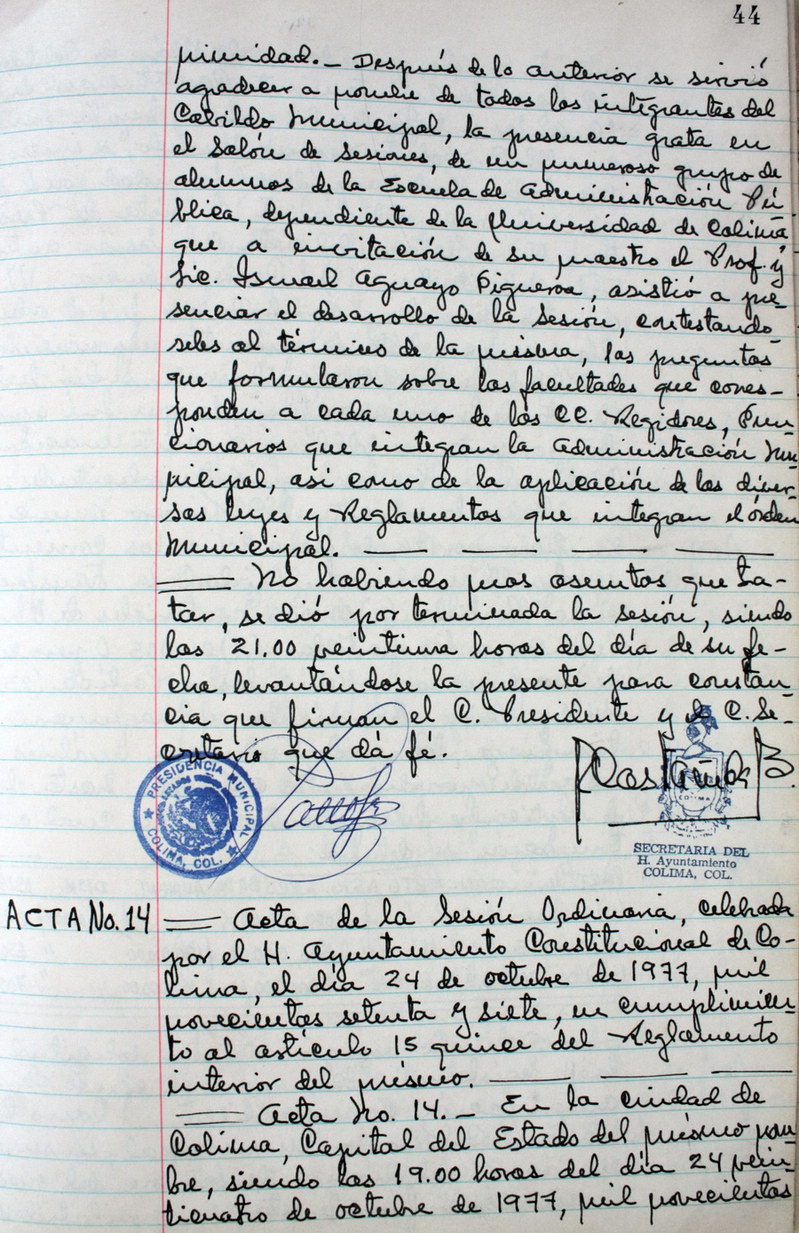 44
nimidad.- Después de lo anterior se sirvió
agradecer a nombre de todos los integrantes del
Cabildo Municipal, la presencia grata en
el Salón de Sesiones, de un numeroso grupo de
alumnos de la Escuela de Administración Pú
blica, dependiente de la Universidad de Colima
que a invitación de su maestro el Prof. y
Lic. Ismael Aguayo Figueroa, asistió a pre-
senciar el desarrollo de la Sesión, contestando-
seles al término de la misma, las preguntas
que formularon sobre las facultades que corres-
ponden a cada uno de los CC. Regidores, Fun-
cionarios que integran la Administración Mu
nicipal, así como de la aplicación de las diver-
sas leyes y Reglamentos que integran el órden
Municipal.
No habiendo mas asuntos que tra-
tar, se dió por terminada la sesión, siendo
las 21.00 veintiuna horas del día de su fe-
cha, levantándose la presente para constan-
cia que firman el C. Presidente y el C. Se-
cretario que dá fé.
PRESIDENCIA MUNICIPAL
COLIMA, COL.
SECRETARIA DEL
H. Ayuntamiento
COLIMA, COL.
ACTA No. 14
Acta de la Sesión Ordinaria, celebrada
por el H. Ayuntamiento Constitucional de Co-
lima, el día 24 de octubre de 1977, mil
novecientos setenta y siete, en cumplimien-
to al artículo 15 quince del Reglamento
interior del mísmo.
Acta No. 14.- En la ciudad de
Colima, Capital del Estado del mísmo nom-
bre, siendo las 19.00 horas del día 24 vein-
ticuatro de octubre de 1977, mil novecientos